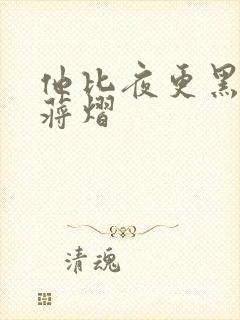 他比夜更黑
蒋熠
清魂